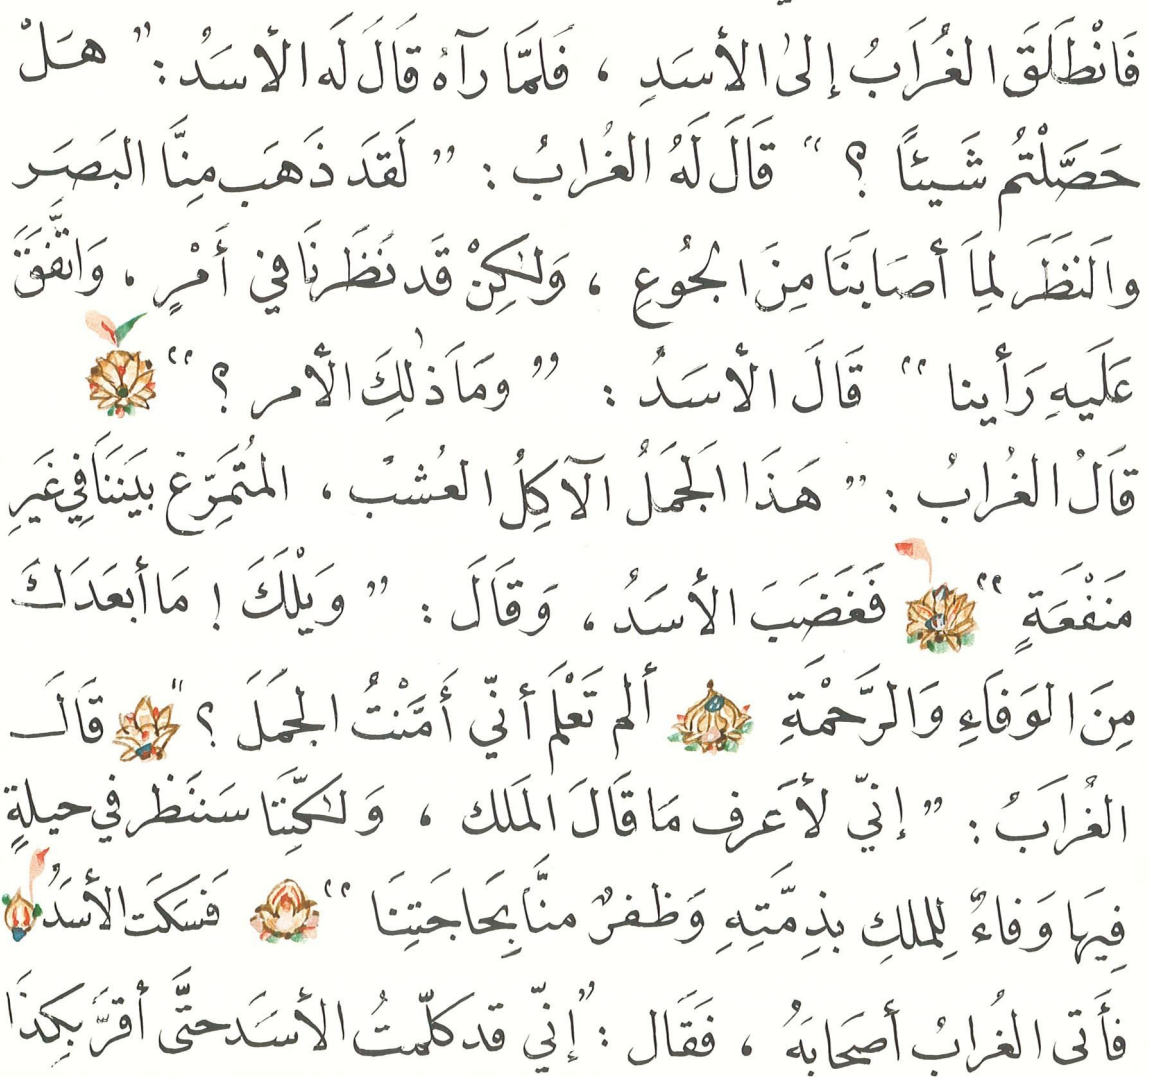 فَانْطَلَقَ الغُرَابُ إِلىٰ الأسَدِ ، فَلَمَّا رآهُ قَالَ لَه الأسَدُ : ” هَلْ
حَصَّلْتُم شَيئاً ؟ “ قَالَ لَهُ الغُرابُ : ” لَقَد ذَهَبَ مِنَّا البَصَر
والَنظَر لِماَ أصَابَنَا مِنَ الجُوعِ ، وَلٰكِنْ قَد نَظَرنَا في أَمْرٍ ، وَاتَّفَقَ
عَلَيهِ رَأينا “ قَالَ الأسَدُ : ” ومَا ذٰلِكَ الأمر ؟ “
قَالُ الغُرابُ : ” هَذَا الجَمَلُ الآكِلُ العُشبْ ، المُتَمَرِّغ بَينَنَا في غَيرِ
مَنْفَعَةٍ “ فَغَضَبَ الأسَدُ ، وَقَالَ : ” ويَلْكَ ! مَا أبعَدَكَ
مِنَ الوَفَاءِ وَالرَّحْمَةِ ألم تَعْلَم أنّي أَمَّنْتُ الجَمَلَ ؟ “ قَالَ
الغُرَابُ : ” إنّي لأَعرف مَا قَالَ المَلك ، وَلٰكنَّنا سَنَنظر في حيلةٍ
فِيهَا وَفاءٌ لِلملكِ بذِمَّتِهِ وَظفرٌ منَّا بِحَاجَتِنَا “ فَسَكَت الأسَدُ
فأَتى الغُرابُ أصحَابَهُ ، فَقَال : ” إنّي قد كلّمتُ الأسَد حتَّى أقرَّ بِكذَا